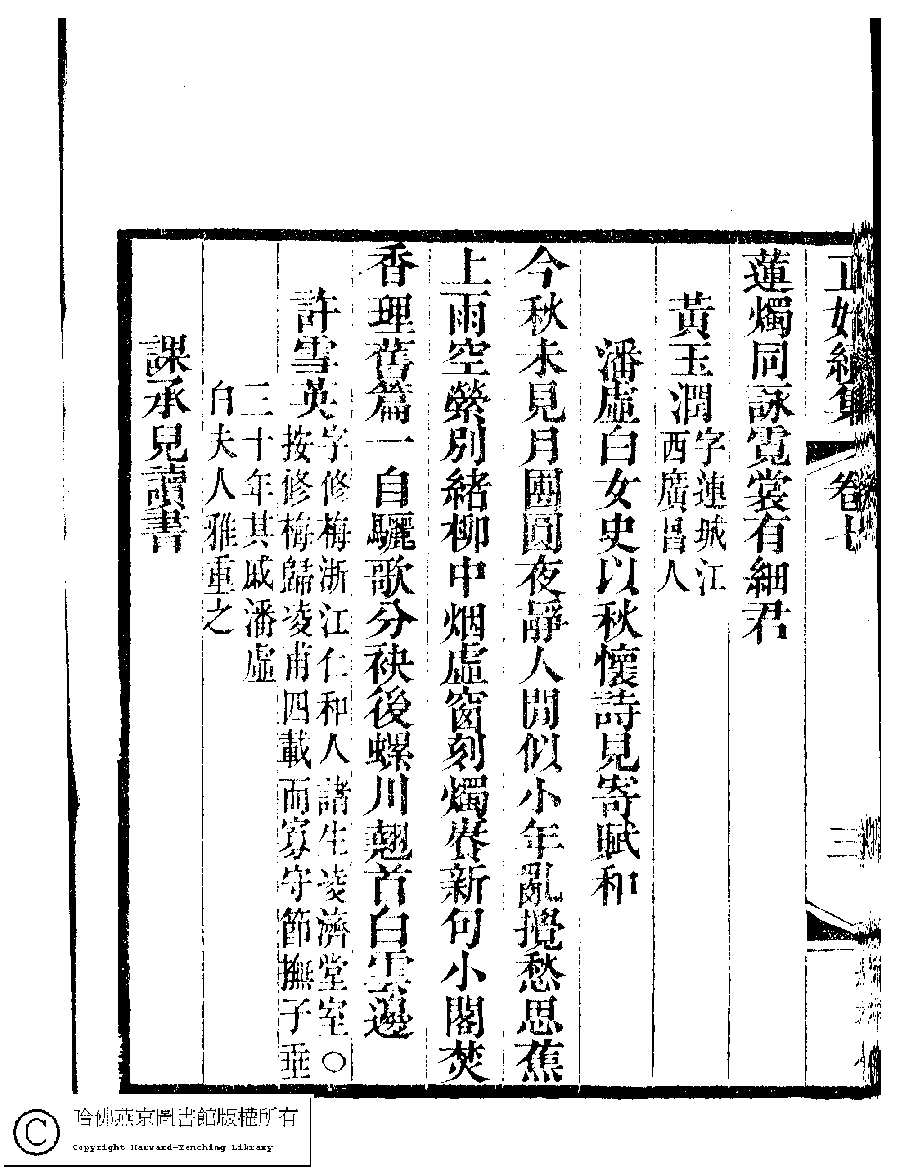 正始續集 卷七 三
蓮燭同詠霓裳有細君
黃玉潤 字蓮城江
西廣昌人
潘虛白女史以秋懷詩見寄賦和
今秋未見月團圓夜靜人閒似小年亂攪愁思蕉
上雨空縈別緒柳中烟虛窗刻燭賡新句小閣焚
香理舊篇一自驪歌分袂後螺川翹首白雲邊
許雪英 字修梅浙江仁和人諸生凌濟堂室〇
按修梅歸凌甫四載而寡守節撫子垂
三十年其戚潘虛
白夫人雅重之
課承兒讀書
哈佛燕京圖書館版權所有
Copyright Harvard-Yenching Library